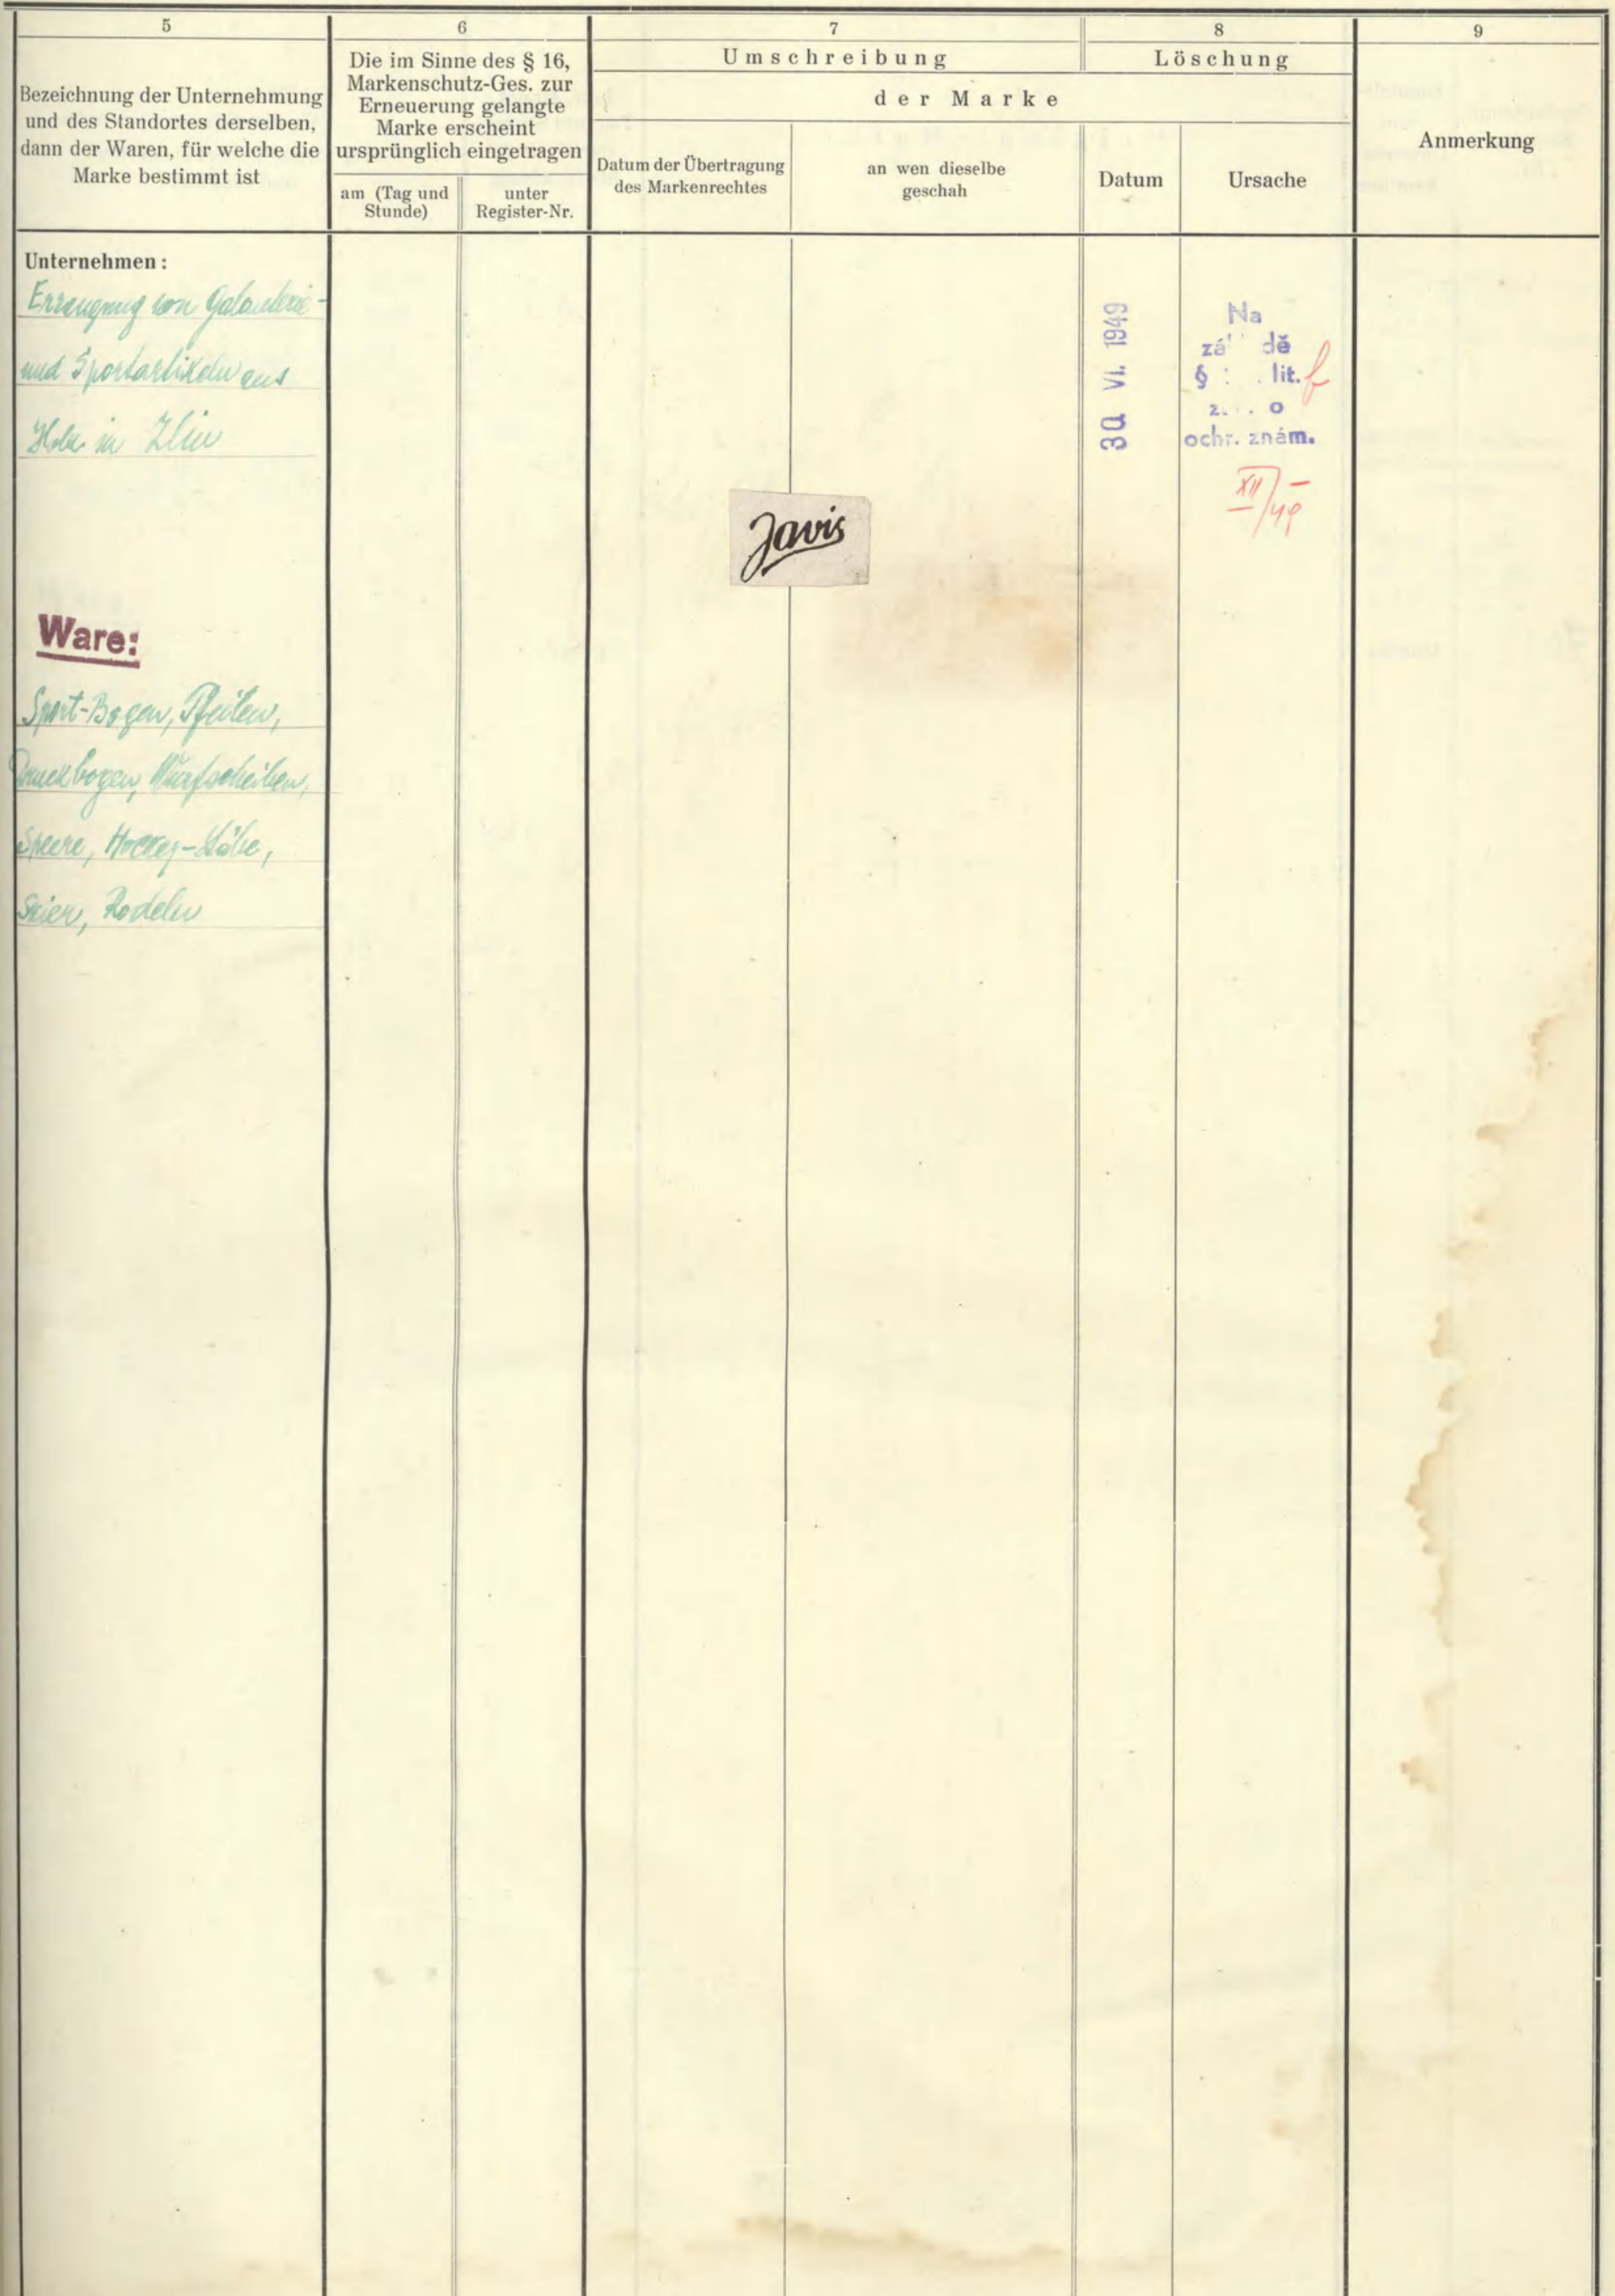 5
Bezeichnung der Unternehmung
und des Standortes derselben,
dann der Waren, für welche die
Marke bestimmt ist
6
Die im Sinne des § 16,
Markenschutz-Ges. zur
Erneuerung gelangte
Marke erscheint
ursprünglich eingetragen
am (Tag und
Stunde)
unter
Register-Nr.
7
Umschreibung
8
Löschung
der Marke
Datum der Übertragung
des Markenrechtes
an wen dieselbe
geschah
Datum
Ursache
9
Anmerkung
Unternehmen:
Erzeugung von Galanterie-
und Sportartikeln aus
Holz in Zlin
Ware:
Sport-Bogen, Pfeilen,
Wurfscheiben,
Speere, Hockey-Stöbe,
Skier, Rodeln
Javis
30 VI. 1949
Na
zá dě
§ : . lit. f
z. . . o
ochr. znám.
XII/49